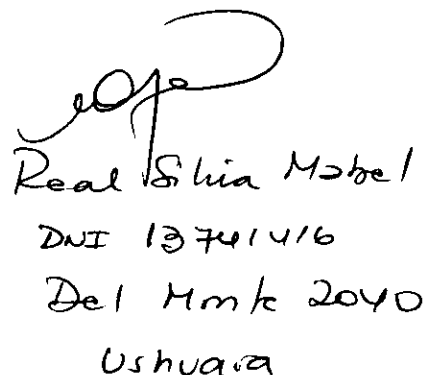 Real Silvia Mabel
DNI 13741416
Del Monte 2040
Ushuaia